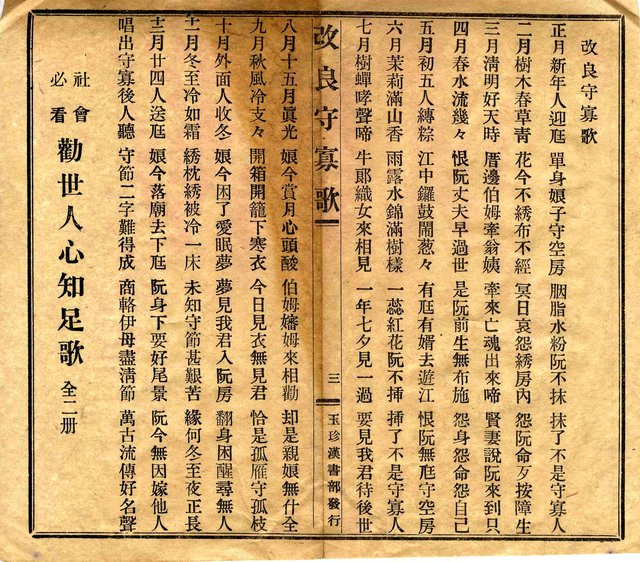 改良守寡歌
正月新年人迎尪 單身娘子守空房 胭脂水粉阮不抹 抹了不是守寡人
二月樹木春草青 花今不綉布不經 冥日哀怨綉房內 怨阮命歹按障生
三月清明好天時 厝邊伯姆牽翁姨 牽來亡魂出來啼 賢妻說阮來到只
四月春水流幾々 恨阮丈夫早過世 是阮前生無布施 怨身怨命怨自己
五月初五人縛粽 江中鑼鼓鬧葱々 有尪有婿去遊江 恨阮無尪守空房
六月茉莉滿山香 雨露水錦滿樹樣 一蕊紅花阮不挿 挿了不是守寡人
七月樹蟬哮聲啼 牛郎織女來相見 一年七夕見一過 要見我君待後世
改良守寡歌
三
玉珍漢書部發行
八月十五月眞光 娘今賞月心頭酸 伯姆嬸姆來相勸 却是親娘無什全
九月秋風冷支々 開箱開籠下寒衣 今日見衣無見君 恰是孤雁守孤枝
十月外面人收冬 娘今困了愛眠夢 夢見我君入阮房 翻身困醒尋無人
十一月冬至冷如霜 綉枕綉被冷一床 未知守節甚艱苦 緣何冬至夜正長
十二月廿四人送尪 娘今落廟去下尪 阮身下要好尾景 阮今無因嫁他人
唱出守寡後人聽 守節二字難得成 商輅伊母盡淸節 萬古流傳好名聲
社會必看
勸世人心知足歌 全二册